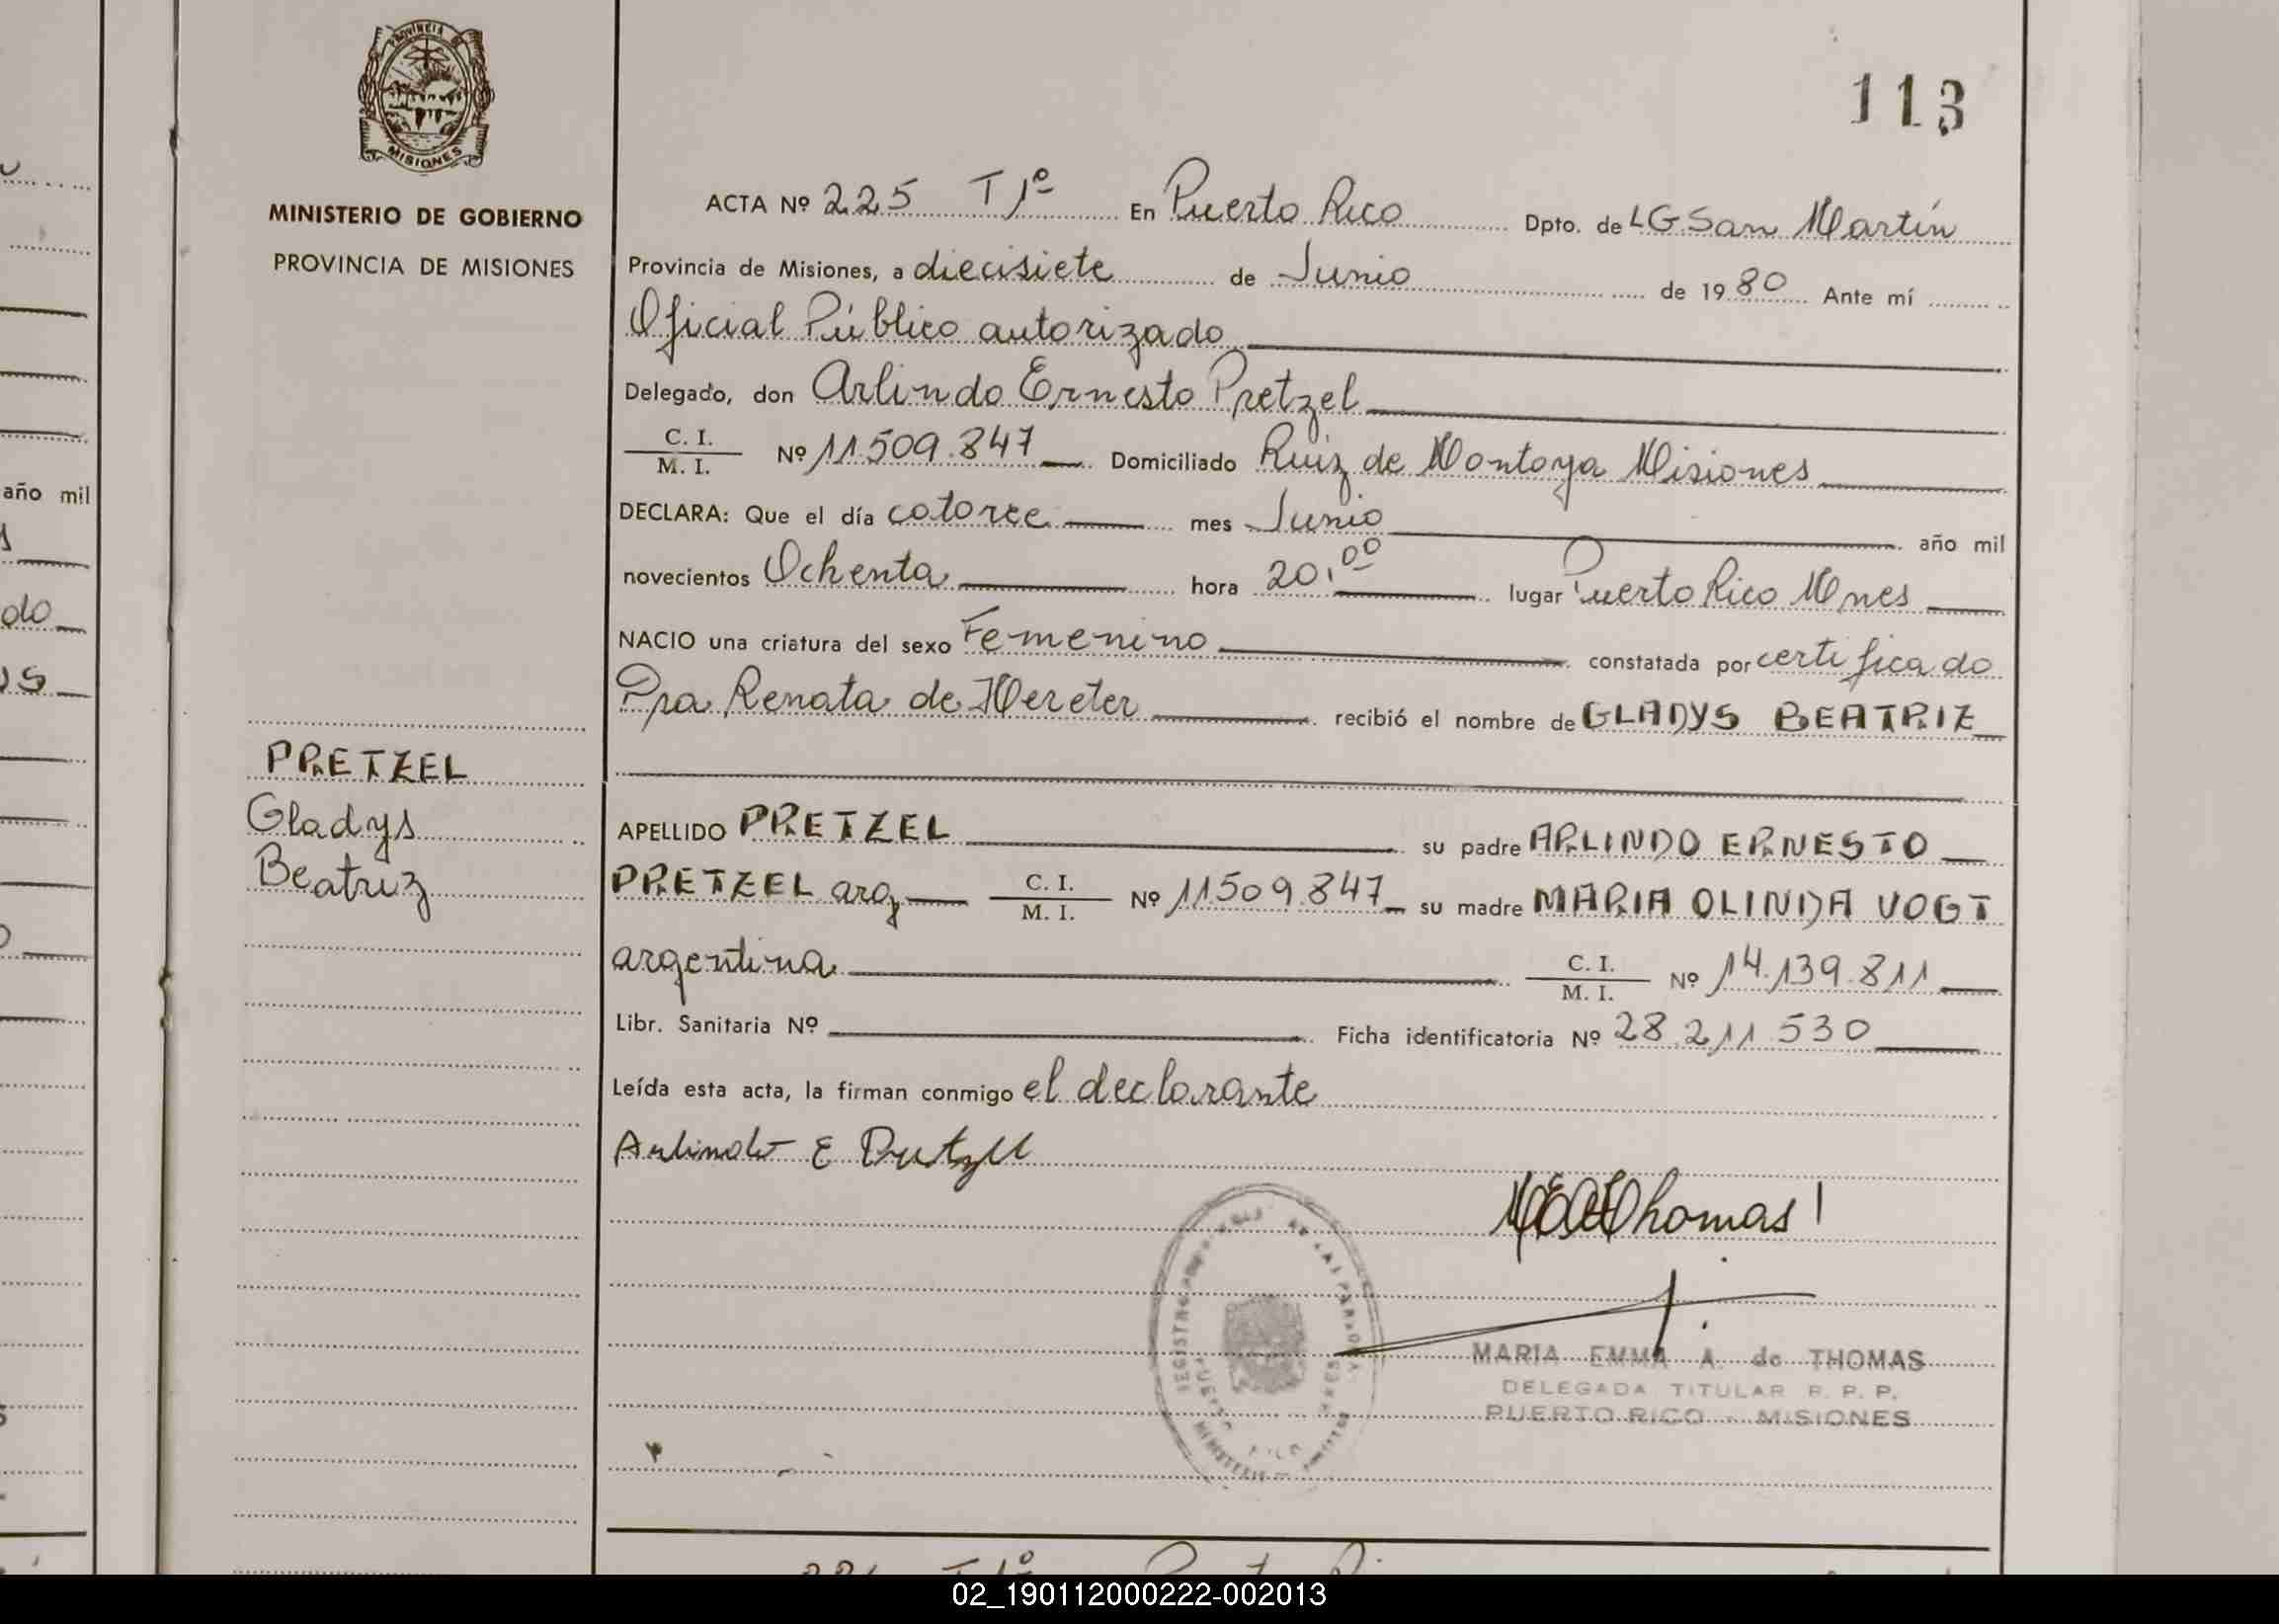 PROVINCIA DE
MISIONES
MINISTERIO DE GOBIERNO
PROVINCIA DE MISIONES
113
ACTA Nº 225 T 1º En Puerto Rico Dpto. de LG San Martín
Provincia de Misiones, a diecisiete de Junio de 1980 Ante mí
Oficial Público autorizado
Delegado, don Arlindo Ernesto Pretzel
C. I.
M. I. Nº 11.509.847 Domiciliado Ruiz de Montoya Misiones
DECLARA: Que el día catorce mes Junio año mil
novecientos Ochenta hora 20,00 lugar Puerto Rico Mnes
NACIO una criatura del sexo Femenino constatada por certificado
Dra Renata de Hereter recibió el nombre de GLADYS BEATRIZ
PRETZEL
Gladys
Beatriz
APELLIDO PRETZEL su padre ARLINDO ERNESTO
PRETZEL arg C. I.
M. I. Nº 11509.847 su madre MARIA OLINDA VOGT
argentina C. I.
M. I. Nº 14.139.811
Libr. Sanitaria Nº Ficha identificatoria Nº 28.211.530
Leída esta acta, la firman conmigo el declarante
Arlindo E Pretzel
MEAdThomas
MARIA EMMA A. de THOMAS
DELEGADA TITULAR R. P. P.
PUERTO RICO - MISIONES
año mil
do
02_190112000222-002013